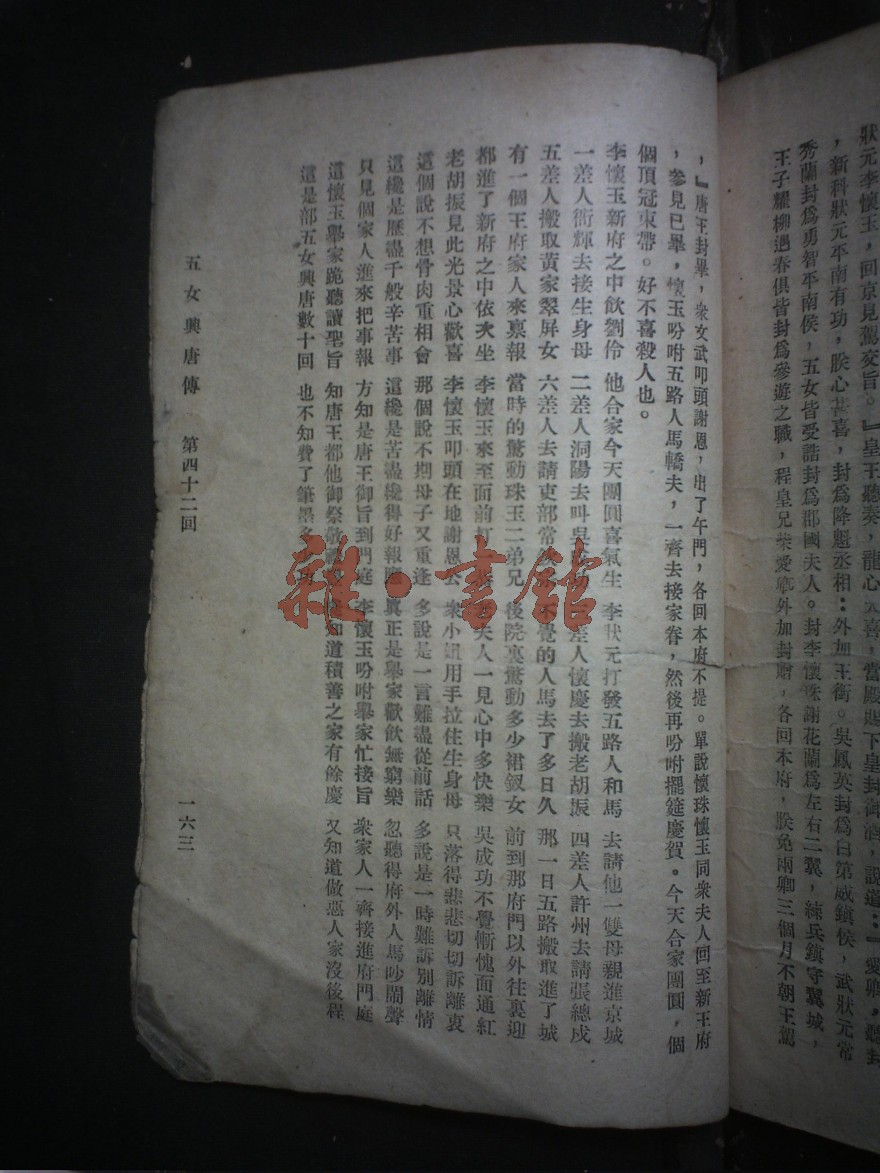 狀元李懷玉，回京見駕交旨。』皇王聽奏，龍心大喜，當殿賜下皇封御酒，說道：『愛卿，聽封
，新科狀元平南有功，朕心甚喜，封爲降魁丞相：外加王銜。吳鳳英封爲白第威鎮侯，武狀元常
秀蘭封爲勇智平南侯，五女皆受誥封爲郡國夫人。封李懷珠謝花蘭爲左右二翼，練兵鎮守翼城，
王子耀柳遇春俱皆封爲參遊之職，程皇兄柴愛卿外加封贈，各回本府，朕免兩卿三個月不朝王駕
，』唐王封畢，衆文武叩頭謝恩，出了午門，各回本府不提。單說懷珠懷玉同衆夫人回至新王府
，參見已畢，懷玉吩咐五路人馬轎夫，一齊去接家眷，然後再吩咐擺筵慶賀。今天合家團圓，個
個頂冠束帶。好不喜殺人也。
李懷玉新府之中飲劉伶 他合家今天團圓喜氣生 李狀元打發五路人和馬 去請他一雙母親進京城
一差人衙輝去接生身母 二差人洞陽去叫吳成功 三差人懷慶去搬老胡振 四差人許州去請張總戍
五差人搬取黃家翠屏女 六差人去請吏部常 不覺的人馬去了多日久 那一日五路搬取進了城
有一個王府家人來稟報 當時的驚動珠玉二弟兄 後院裏驚動多少裙釵女 前到那府門以外往裏迎
都進了新府之中依次坐 李懷玉來至面前打一 夫人一見心中多快樂 吳成功不覺慚愧面通紅
老胡振見此光景心歡喜 李懷玉叩頭在地謝恩公 衆小姐用手拉住生身母 只落得悲悲切切訴離衷
這個說不想骨肉重相會 那個說不期母子又重逢 多說是一言難盡從前話 多說是一時難訴別離情
這纔是歷盡千般辛苦事 這纔是苦盡纔得好報應 真正是舉家歡飲無窮樂 忽聽得府外人馬吵鬧聲
只見個家人進來把事報 方知是唐王御旨到門庭 李懷玉吩咐舉家忙接旨 衆家人一齊接進府門庭
這懷玉舉家跪聽讀聖旨 知唐王都他御祭敬 知道積善之家有餘慶 又知道做惡人家沒後程
這是部五女興唐數十回 也不知費了筆墨多
五女興唐傳 第四十二回 一六三
雜·書館